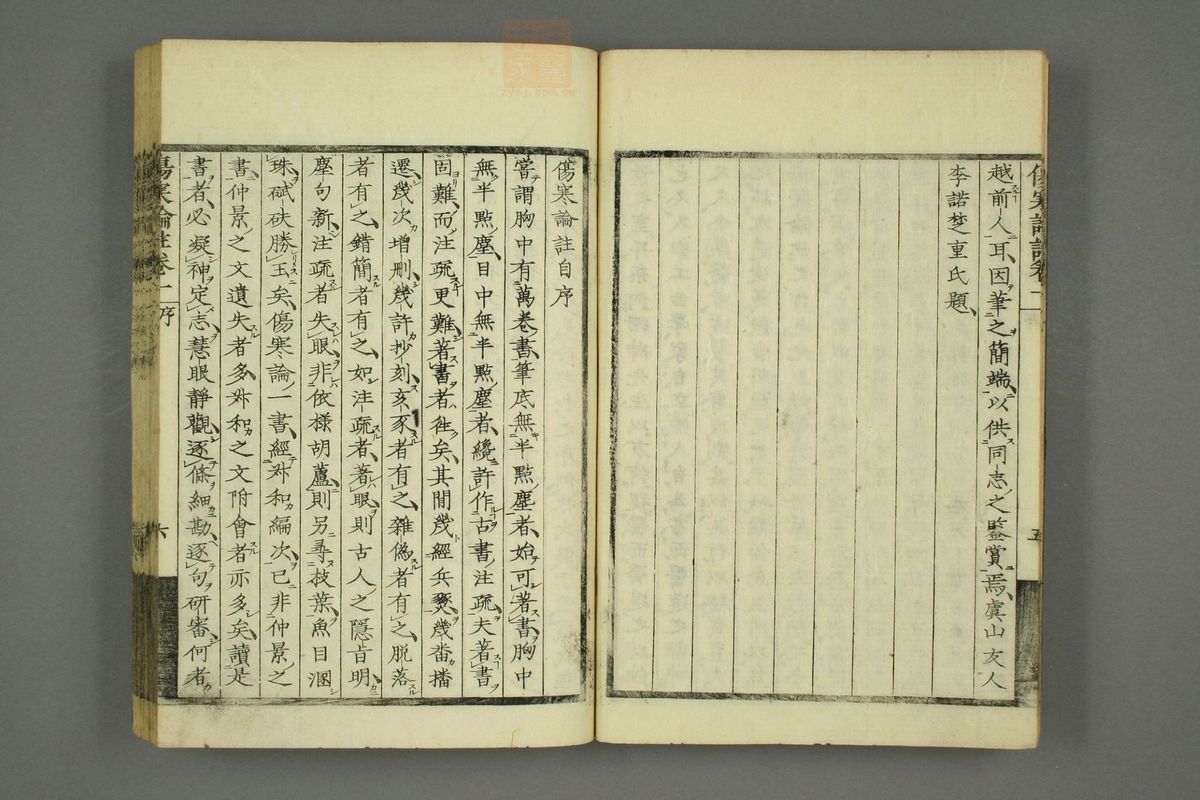 越前人耳因筆之簡端以供同志之鑒賞焉虞山友人
李諾楚重氏題
五
傷寒論註自序
嘗謂胸中有萬卷書筆底無半點塵者始可著書胸中
無半點塵目中無半點塵者纔許作古書注疏夫著書
固難而注疏更難著書者徃矣其間幾經兵燹幾畨播
遷幾次增刪幾許抄刻亥豕者有之雜偽者有之脱落
者有之錯簡者有之如注疏者著眼則古人之隱旨明
塵句新注疏者失眼非依樣胡蘆則另尋枝葉魚目溷
珠碔砆勝玉矣傷寒論一書經叔和編次已非仲景之
書仲景之文遺失者多叔和之文附會者亦多矣讀是
書者必凝神定志慧眼靜觀逐條細勘逐句研審何者
傷寒論註卷一序
六
zysj.com.cn